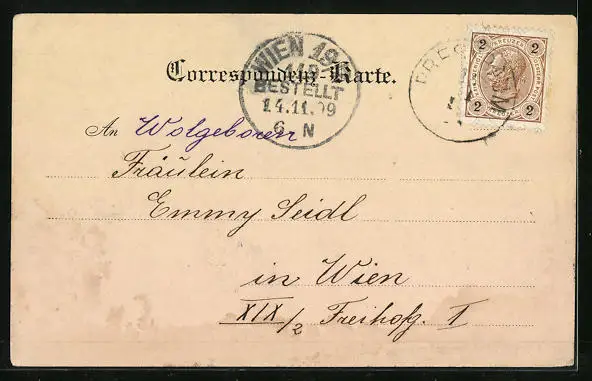 Correspondenz-Karte.
WIEN 19
BESTELLT
14.11.99
6 N
BREG
2 KREUZER 2
2 2
An Wolgeboren
Fräulein
Emmy Seidl
in Wien
XIX/2 Freihofg. 1